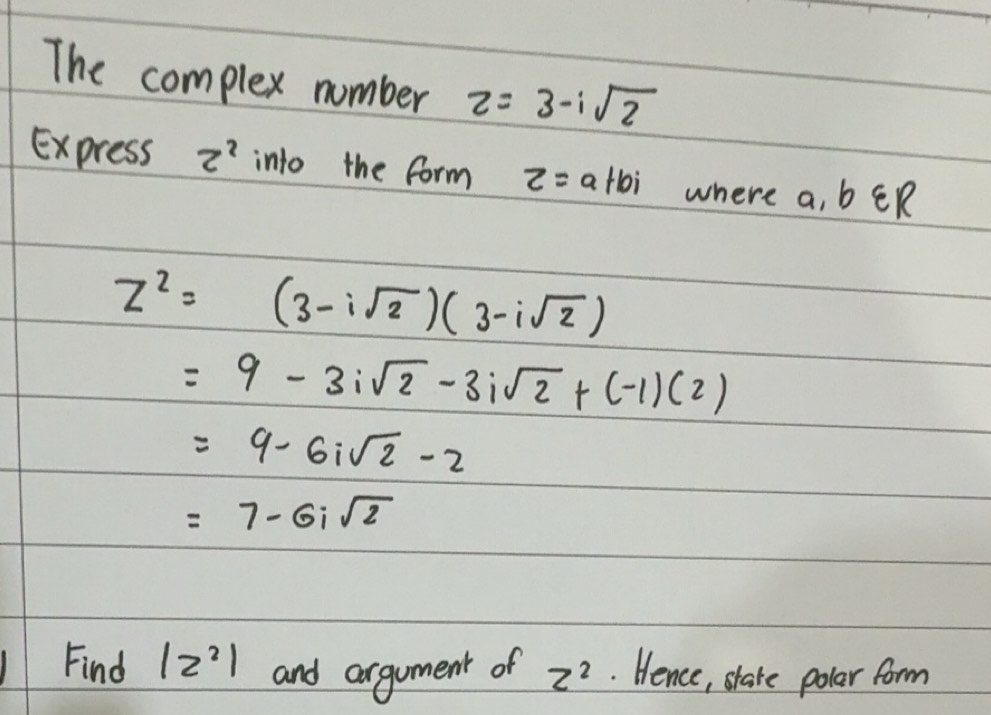 The complex number z = 3-i√2
Express z² into the form z = a+bi where a, b ∈ R
z² = (3-i√2)(3-i√2)
= 9 - 3i√2 - 3i√2 + (-1)(2)
= 9 - 6i√2 - 2
= 7 - 6i√2
) Find |z²| and argument of z². Hence, state polar form